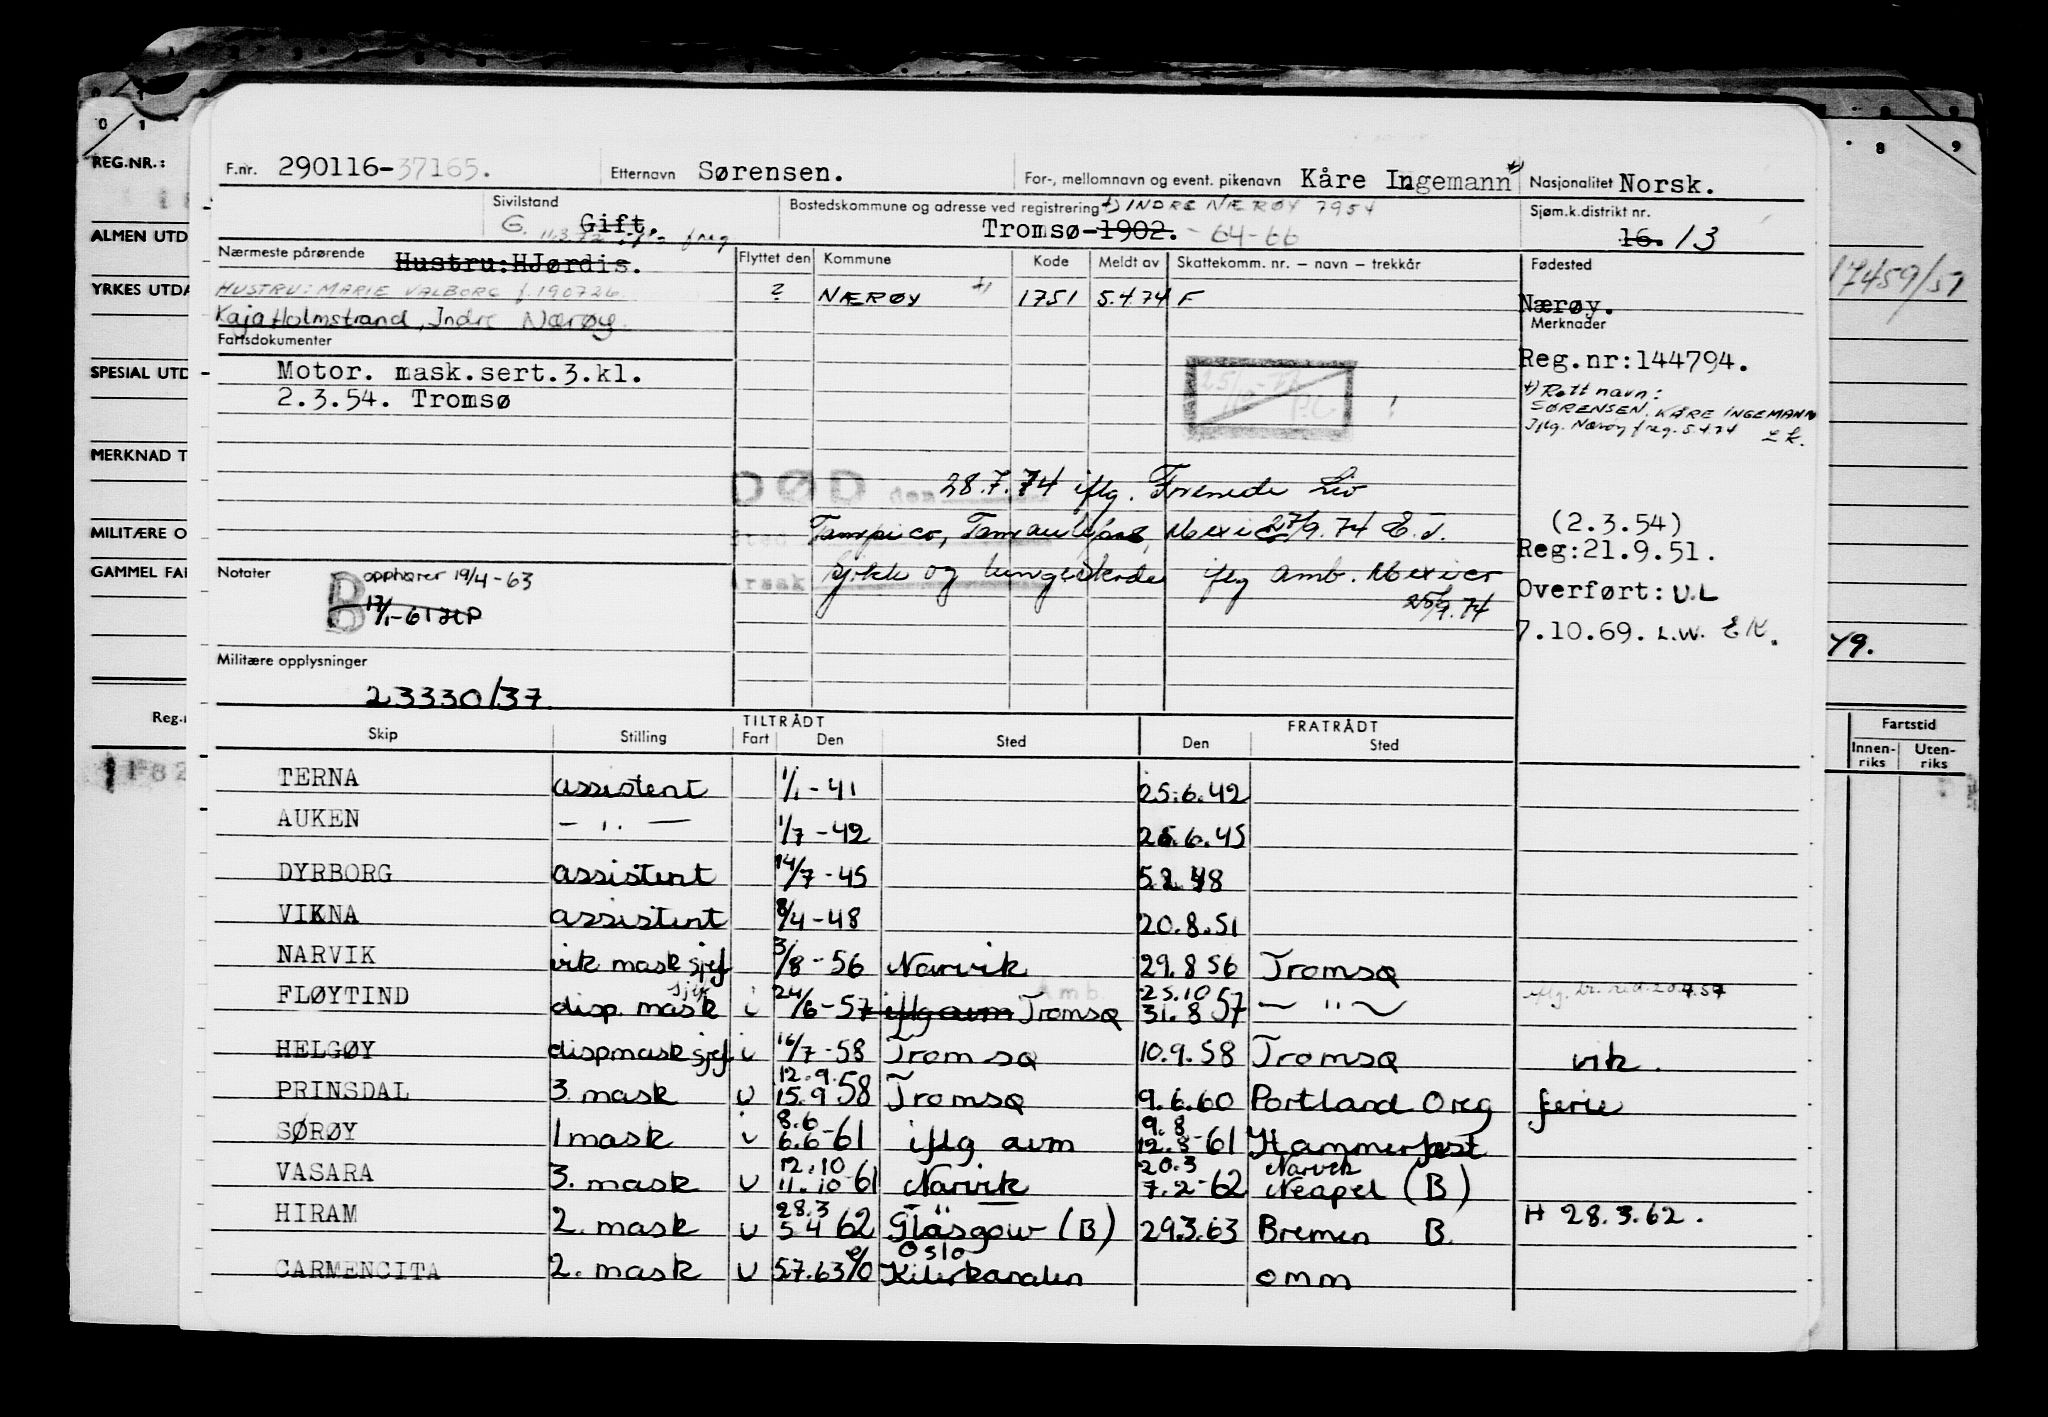 0 1 8 9
REG.NR.:
ALMEN UTD
YRKES UTDA
SPESIAL UTD
MERKNAD T
MILITÆRE O
GAMMEL FAR
Reg.n
17459/51
49.
Fartstid
Innen-riks Uten-riks
F.nr. 290116-37165. Etternavn Sørensen. For-, mellomnavn og event. pikenavn Kåre Ingemann +) Nasjonalitet Norsk.
Sivilstand G. Gift. Bostedskommune og adresse ved registrering +) INDRE NÆRØY 7954 Sjøm.k.distrikt nr.
Tromsø-1902. - 64-66 16. 13
Nærmeste pårørende Hustru:HJørdis. Flyttet den Kommune Kode Meldt av Skattekomm. nr. – navn – trekkår Fødested
HUSTRU: MARIE VALBORG f. 190726 ? NÆRØY +) 1751 5.4.74 F Nærøy.
Kaja Holmstrand, Indre Nærøy. Merknader
Fartsdokumenter
Motor. mask.sert.3.kl. Reg.nr:144794.
2.3.54. Tromsø
+) Rett navn:
SØRENSEN, KÅRE INGEMANN
Iflg. Nærøy freg. 5.4.74
DØD den 28.7.74 iflg. Forenede Liv
Tampico, Tamaulipas, Mexico 27/9.74 E.J. (2.3.54)
Reg:21.9.51.
Notater Hjerte og lungeskader iflg amb. Mexico
B opphører 19/4-63 25/9.74 Overført: U.L
B 17/1-61 HP 7.10.69. L.W. EK.
Militære opplysninger
23330/37.
TILTRÅDT FRATRÅDT
Skip Stilling Fart Den Sted Den Sted
TERNA assistent 1/1-41 25.6.42
AUKEN — " — 1/7-42 26.6.45
DYRBORG assistent 14/7-45 5.2.48
VIKNA assistent 8/4-48 20.8.51
NARVIK vik mask sjef 3/8-56 Narvik 29.8 56 Tromsø
FLØYTIND disp. mask sjef i 24/6-57 iflg avm Tromsø 25.10 31.8 57 — " —
HELGØY disp mask sjef i 16/7-58 Tromsø 10.9.58 Tromsø vik.
PRINSDAL 3 mask U 12.9. 15.9 58 Tromsø 9.6.60 Portland Oreg ferie
SØRØY 1 mask i 8.6 6.6-61 iflg avm 9.8 12.3-61 Hammerfest
VASARA 3. mask U 12.10 11.10-61 Narvik 20.3 7.2-62 Narvik Neapel (B)
HIRAM 2. mask U 28.3 5 4 62 Glasgow (B) 29.3.63 Bremen B. H 28.3.62.
CARMENCITA 2. mask U 5.7.63 e/o Oslo Kielerkanalen omm